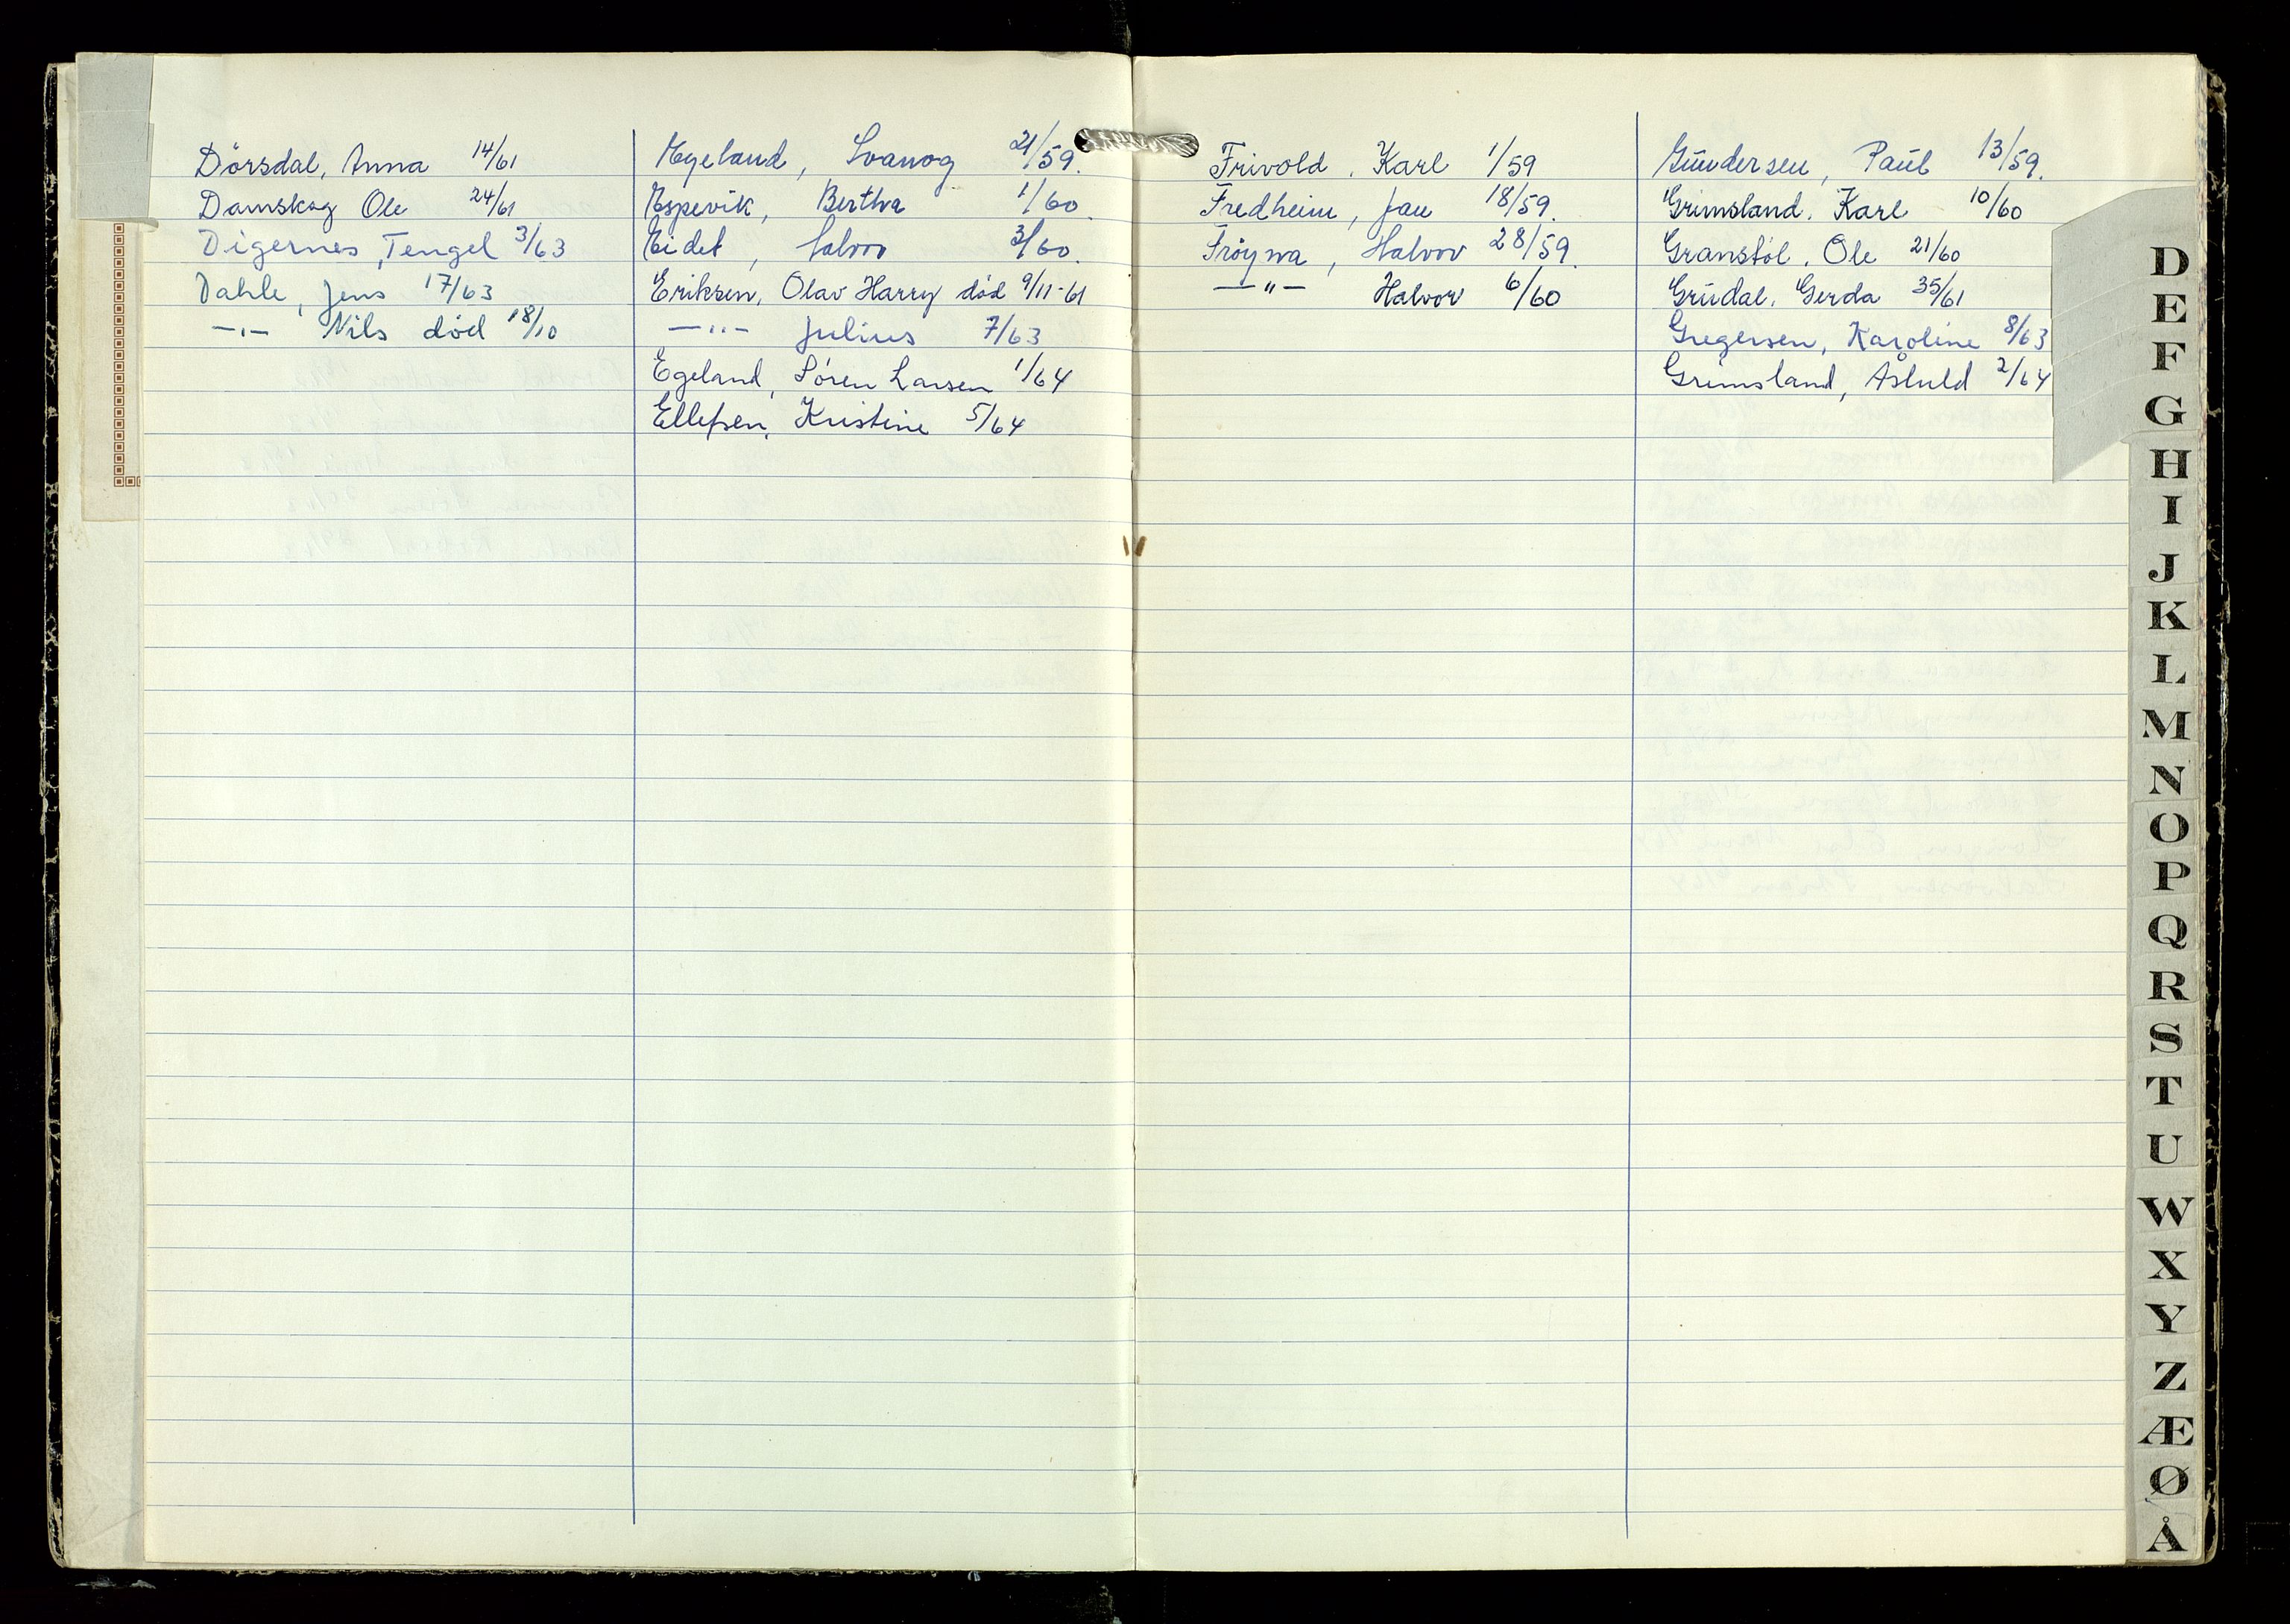 Dörsdal, Anna 14/61
Damskog Ole 24/61
Digernes, Tengel 3/63
Dahle, Jens 17/63
—"— Nils död 18/10
Egeland, Svanog 21/59.
Espevik, Bertha 1/60.
Eidet, Salvor 3/60.
Eriksen, Olav Harry död 9/11-61
—"— Julius 7/63
Egeland, Sören Larsen 1/64
Ellefsen, Kristine 5/64
Frivold, Karl 1/59
Fredheim, Jan 18/59.
Fröyna, Halvor 28/59.
—"— Halvor 6/60
Gundersen, Paul 13/59.
Grimsland, Karl 10/60
Granstöl, Ole 21/60
Grudal, Gerda 35/61
Gregersen, Karoline 8/63
Grimsland, Åshuld 2/64
D
E
F
G
H
I
J
K
L
M
N
O
P
Q
R
S
T
U
W
X
Y
Z
Æ
Ø
Å